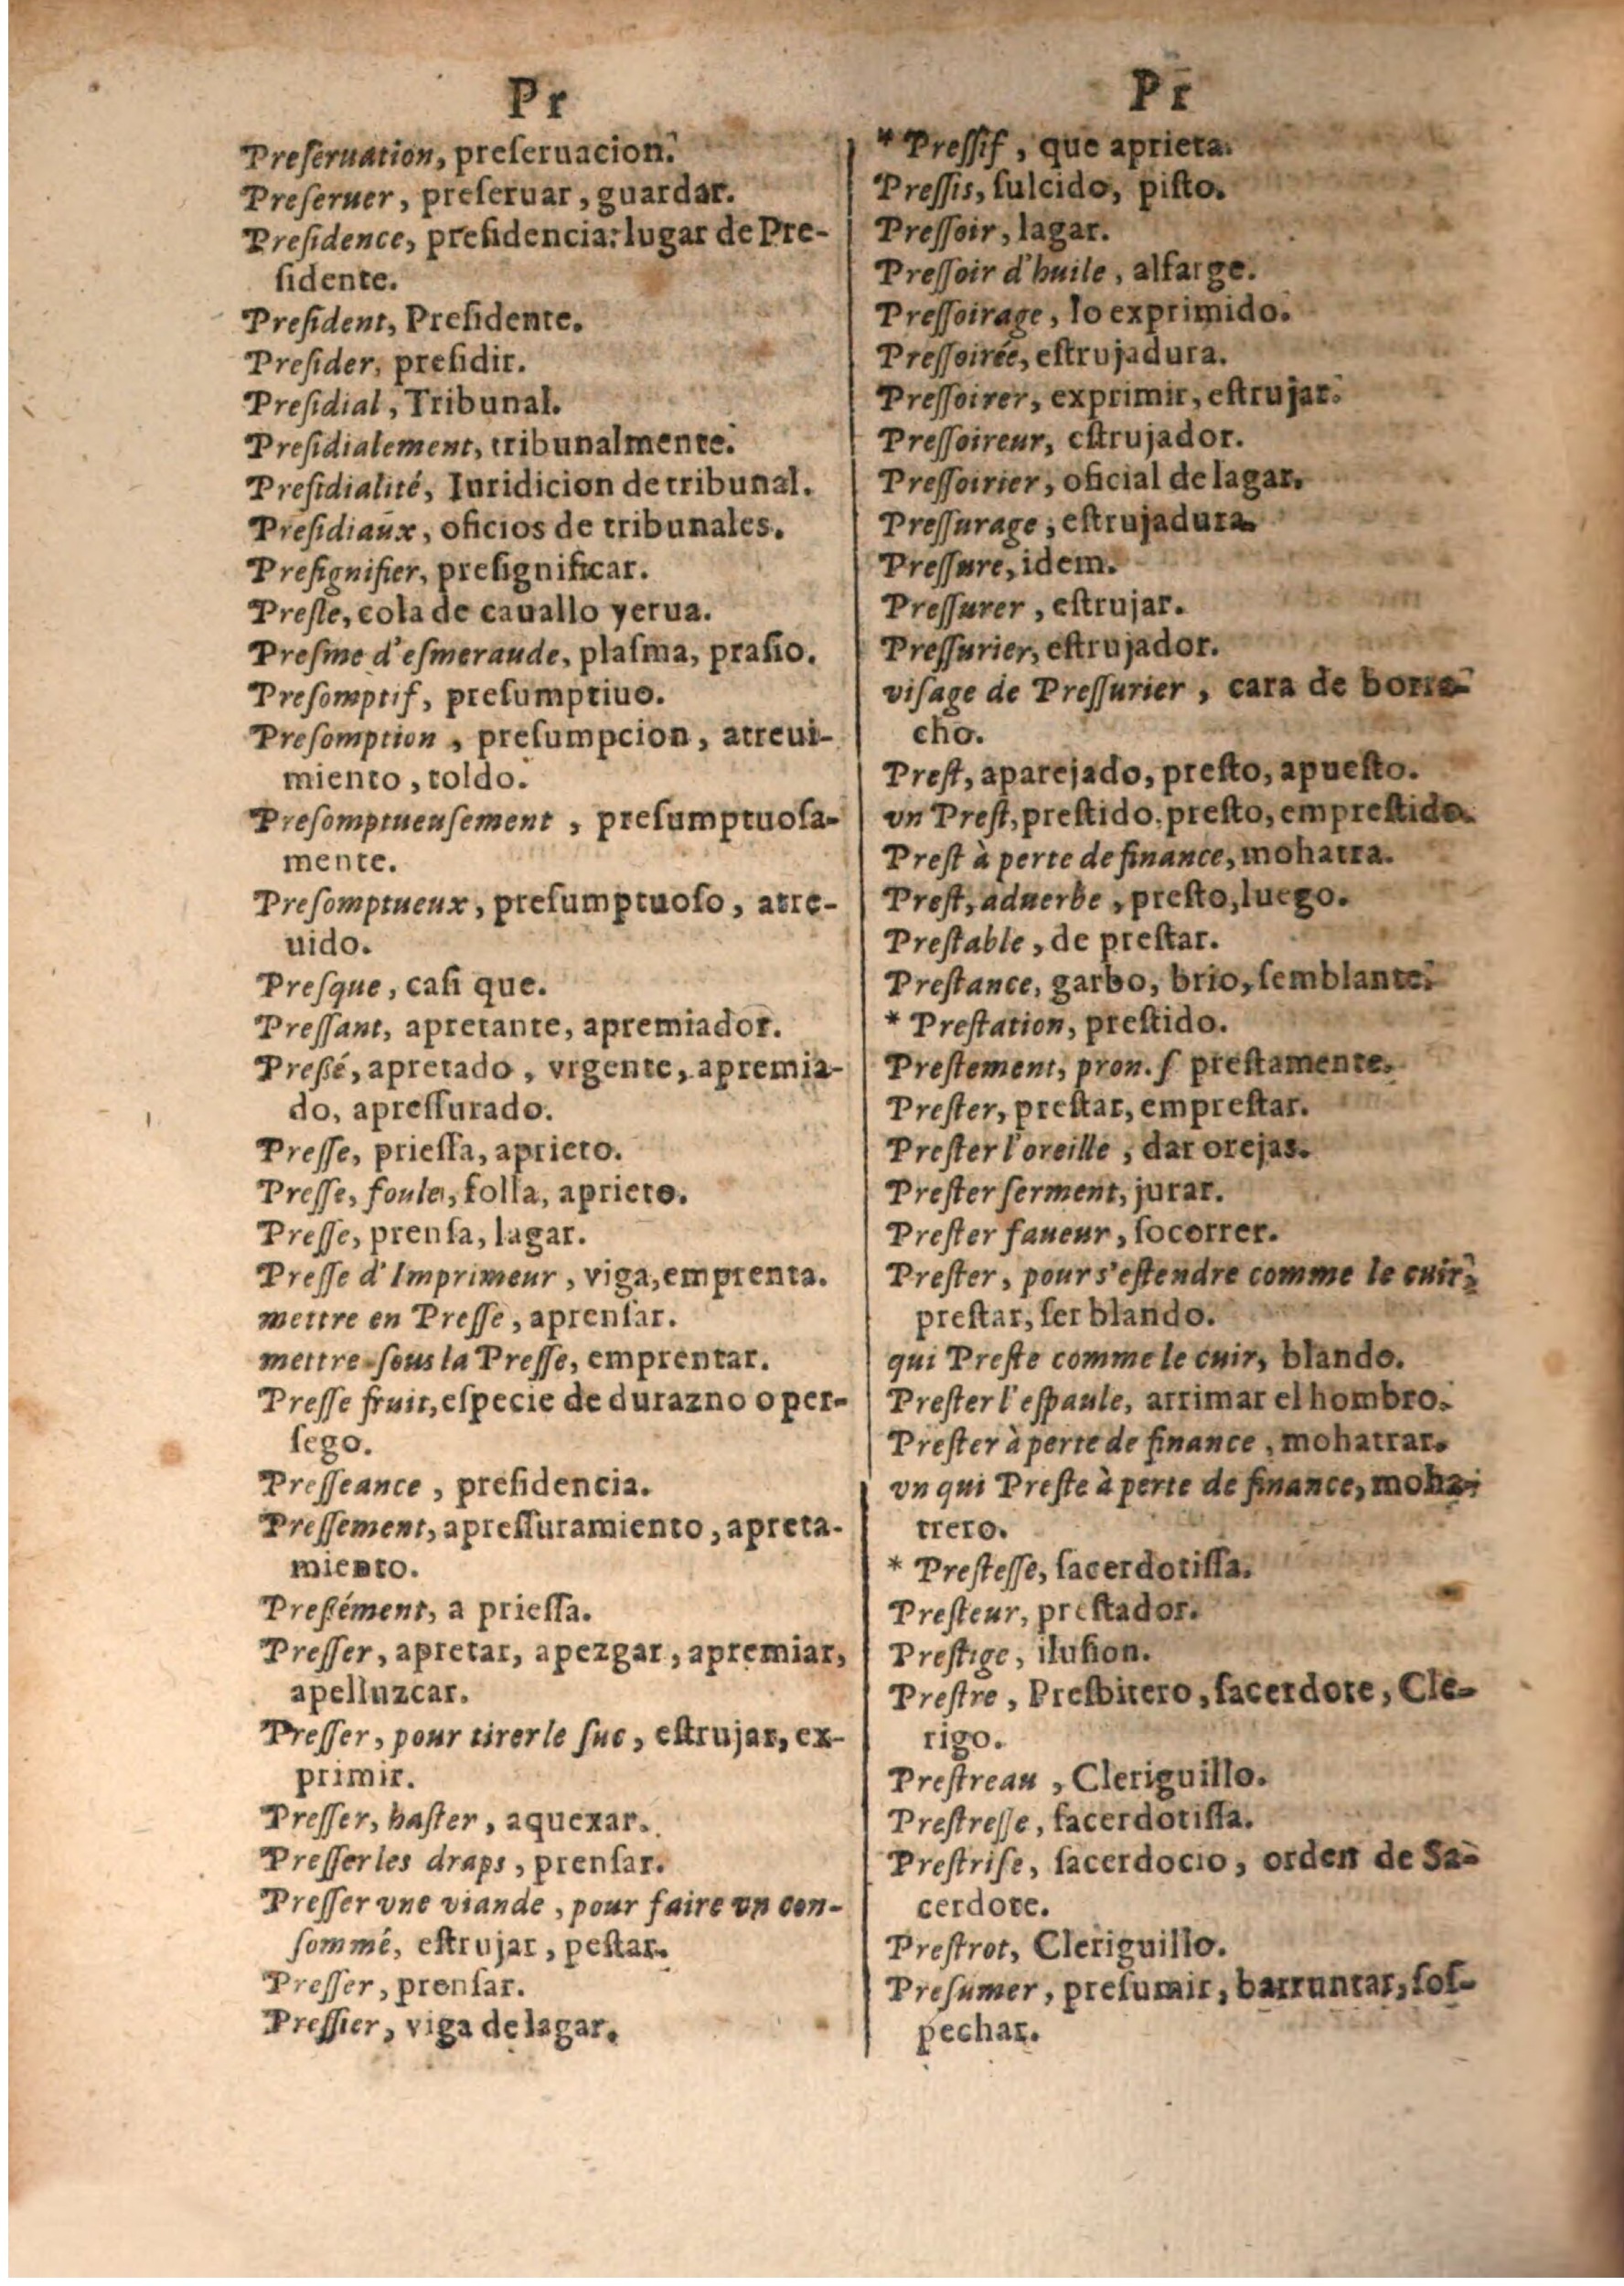 Pr
Preſeruation, preſeruacion.
Preſeruer, preſeruar, guardar.
Preſidence, preſidencia: lugar de Pre-
ſidente.
Preſident, Preſidente.
Preſider, preſidir.
Preſidial, Tribunal.
Preſidialement, tribunalmente.
Preſidialité, Iuridicion de tribunal.
Preſidiaux, oficios de tribunales.
Preſignifier, preſignificar.
Preſle, cola de cauallo yerua.
Preſme d'eſmeraude, plaſma, praſio.
Preſomptif, preſumptiuo.
Preſomption, preſumpcion, atreui-
miento, toldo.
Preſomptueuſement, preſumptuoſa-
mente.
Preſomptueux, preſumptuoſo, atre-
uido.
Preſque, caſi que.
Preſſant, apretante, apremiador.
Preßé, apretado, vrgente, apremia-
do, apreſſurado.
Preſſe, prieſſa, aprieto.
Preſſe, foule, folla, aprieto.
Preſſe, prenſa, lagar.
Preſſe d'Imprimeur, viga, emprenta.
mettre en Preſſe, aprenſar.
mettre ſous la Preſſe, emprentar.
Preſſe fruit, eſpecie de durazno o per-
ſego.
Preſſeance, preſidencia.
Preſſement, apreſſuramiento, apreta-
miento.
Preßément, a prieſſa.
Preſſer, apretar, apezgar, apremiar,
apelluzcar.
Preſſer, pour tirer le ſuc, eſtrujar, ex-
primir.
Preſſer, haſter, aquexar.
Preſſer les draps, prenſar.
Preſſer vne viande, pour faire vn con-
ſommé, eſtrujar, peſtar.
Preſſer, prenſar.
Preſſier, viga de lagar.
Pr
* Preſſif, que aprieta.
Preſſis, ſulcido, piſto.
Preſſoir, lagar.
Preſſoir d'huile, alfarge.
Preſſoirage, lo exprimido.
Preſſoirée, eſtrujadura.
Preſſoirer, exprimir, eſtrujar.
Preſſoireur, eſtrujador.
Preſſoirier, oficial de lagar.
Preſſurage, eſtrujadura.
Preſſure, idem.
Preſſurer, eſtrujar.
Preſſurier, eſtrujador.
viſage de Preſſurier, cara de borra-
cho.
Preſt, aparejado, preſto, apueſto.
vn Preſt, preſtido, preſto, empreſtido.
Preſt à perte de finance, mohatra.
Preſt, aduerbe, preſto, luego.
Preſtable, de preſtar.
Preſtance, garbo, brio, ſemblante.
* Preſtation, preſtido.
Preſtement, pron. ſ preſtamente.
Preſter, preſtar, empreſtar.
Preſter l'oreille, dar orejas.
Preſter ſerment, jurar.
Preſter faueur, ſocorrer.
Preſter, pour s'eſtendre comme le cuir,
preſtar, ſer blando.
qui Preſte comme le cuir, blando.
Preſter l'eſpaule, arrimar el hombro.
Preſter à perte de finance, mohatrar.
vn qui Preſte à perte de finance, moha-
trero.
* Preſteſſe, ſacerdotiſſa.
Preſteur, preſtador.
Preſtige, iluſion.
Preſtre, Preſbitero, ſacerdote, Cle-
rigo.
Preſtreau, Cleriguillo.
Preſtreſſe, ſacerdotiſſa.
Preſtriſe, ſacerdocio, orden de Sa-
cerdote.
Preſtrot, Cleriguillo.
Preſumer, preſumir, barruntar, ſoſ-
pechar.